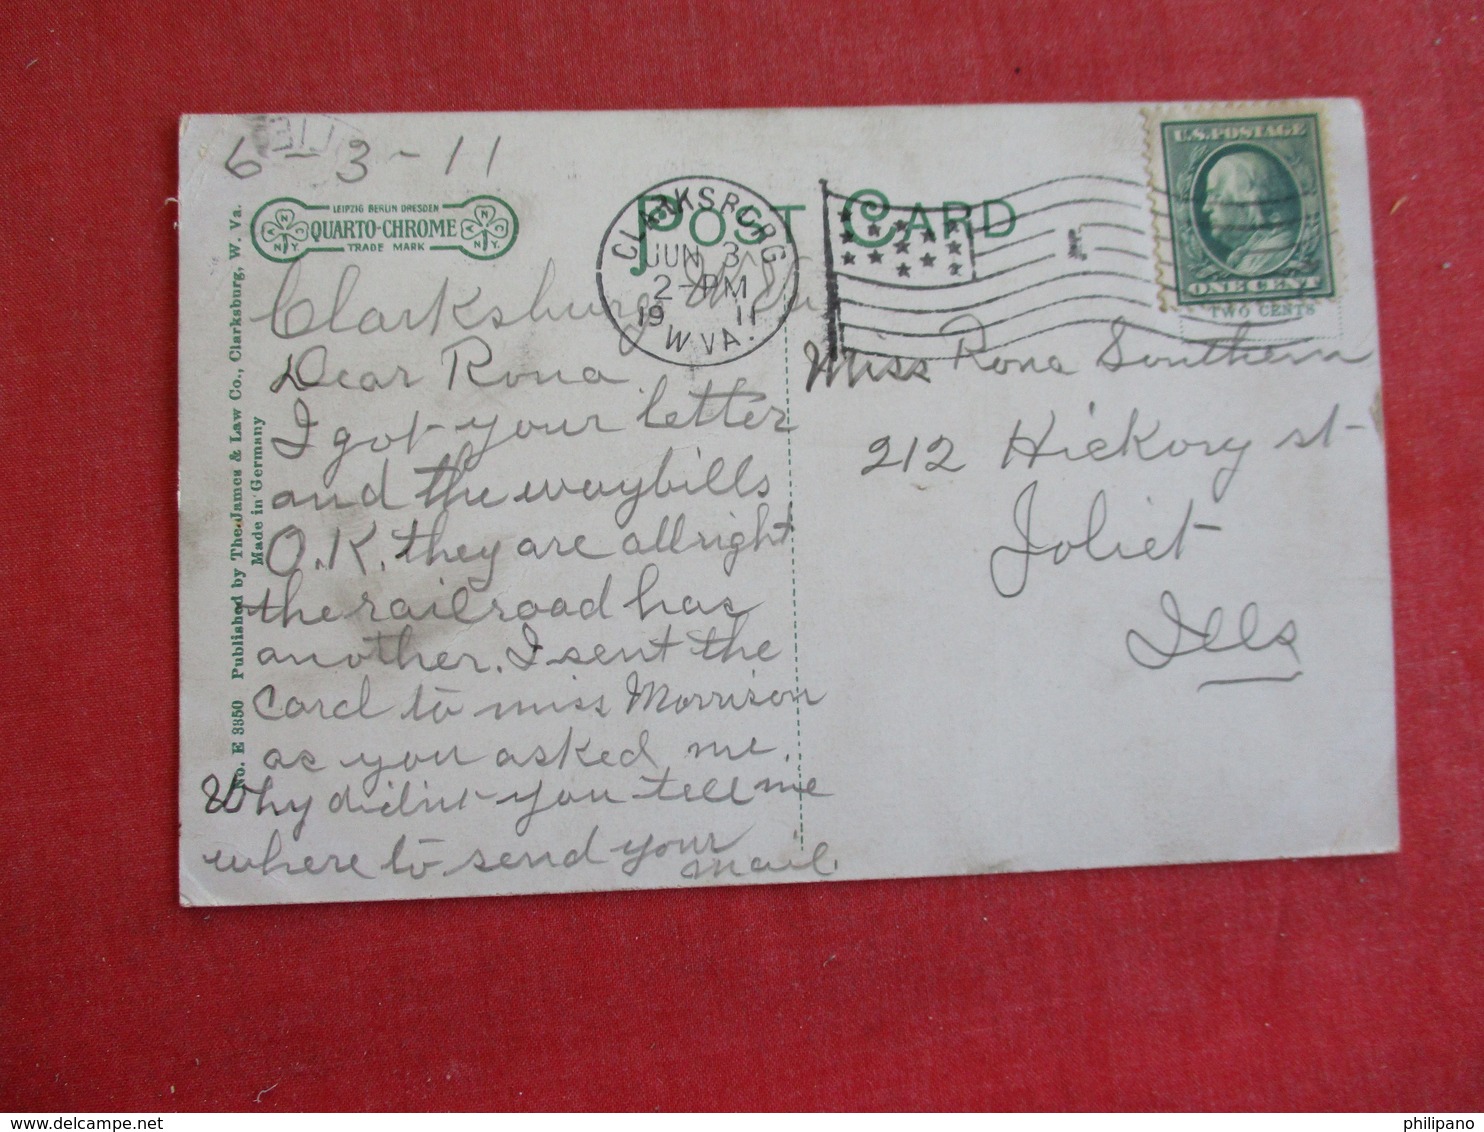 6-3-11
LEIPZIG BERLIN DRESDEN
QUARTO-CHROME
TRADE MARK
POST CARD
CLARKSBURG
JUN 3
2-PM
1911
W VA.
U.S. POSTAGE
ONE CENT
TWO CENTS
No. E 3350 Published by The James & Law Co., Clarksburg, W. Va.
Made in Germany
Clarksburg W. Va
Dear Rona
I got your letter
and the waybills
O.K. they are allright
the railroad has
another. I sent the
card to miss Morrison
as you asked me.
Why didn't you tell me
where to send your
mail.
Miss Rona Southern
212 Hickory st
Joliet
Ills
delcampe.net
philipano